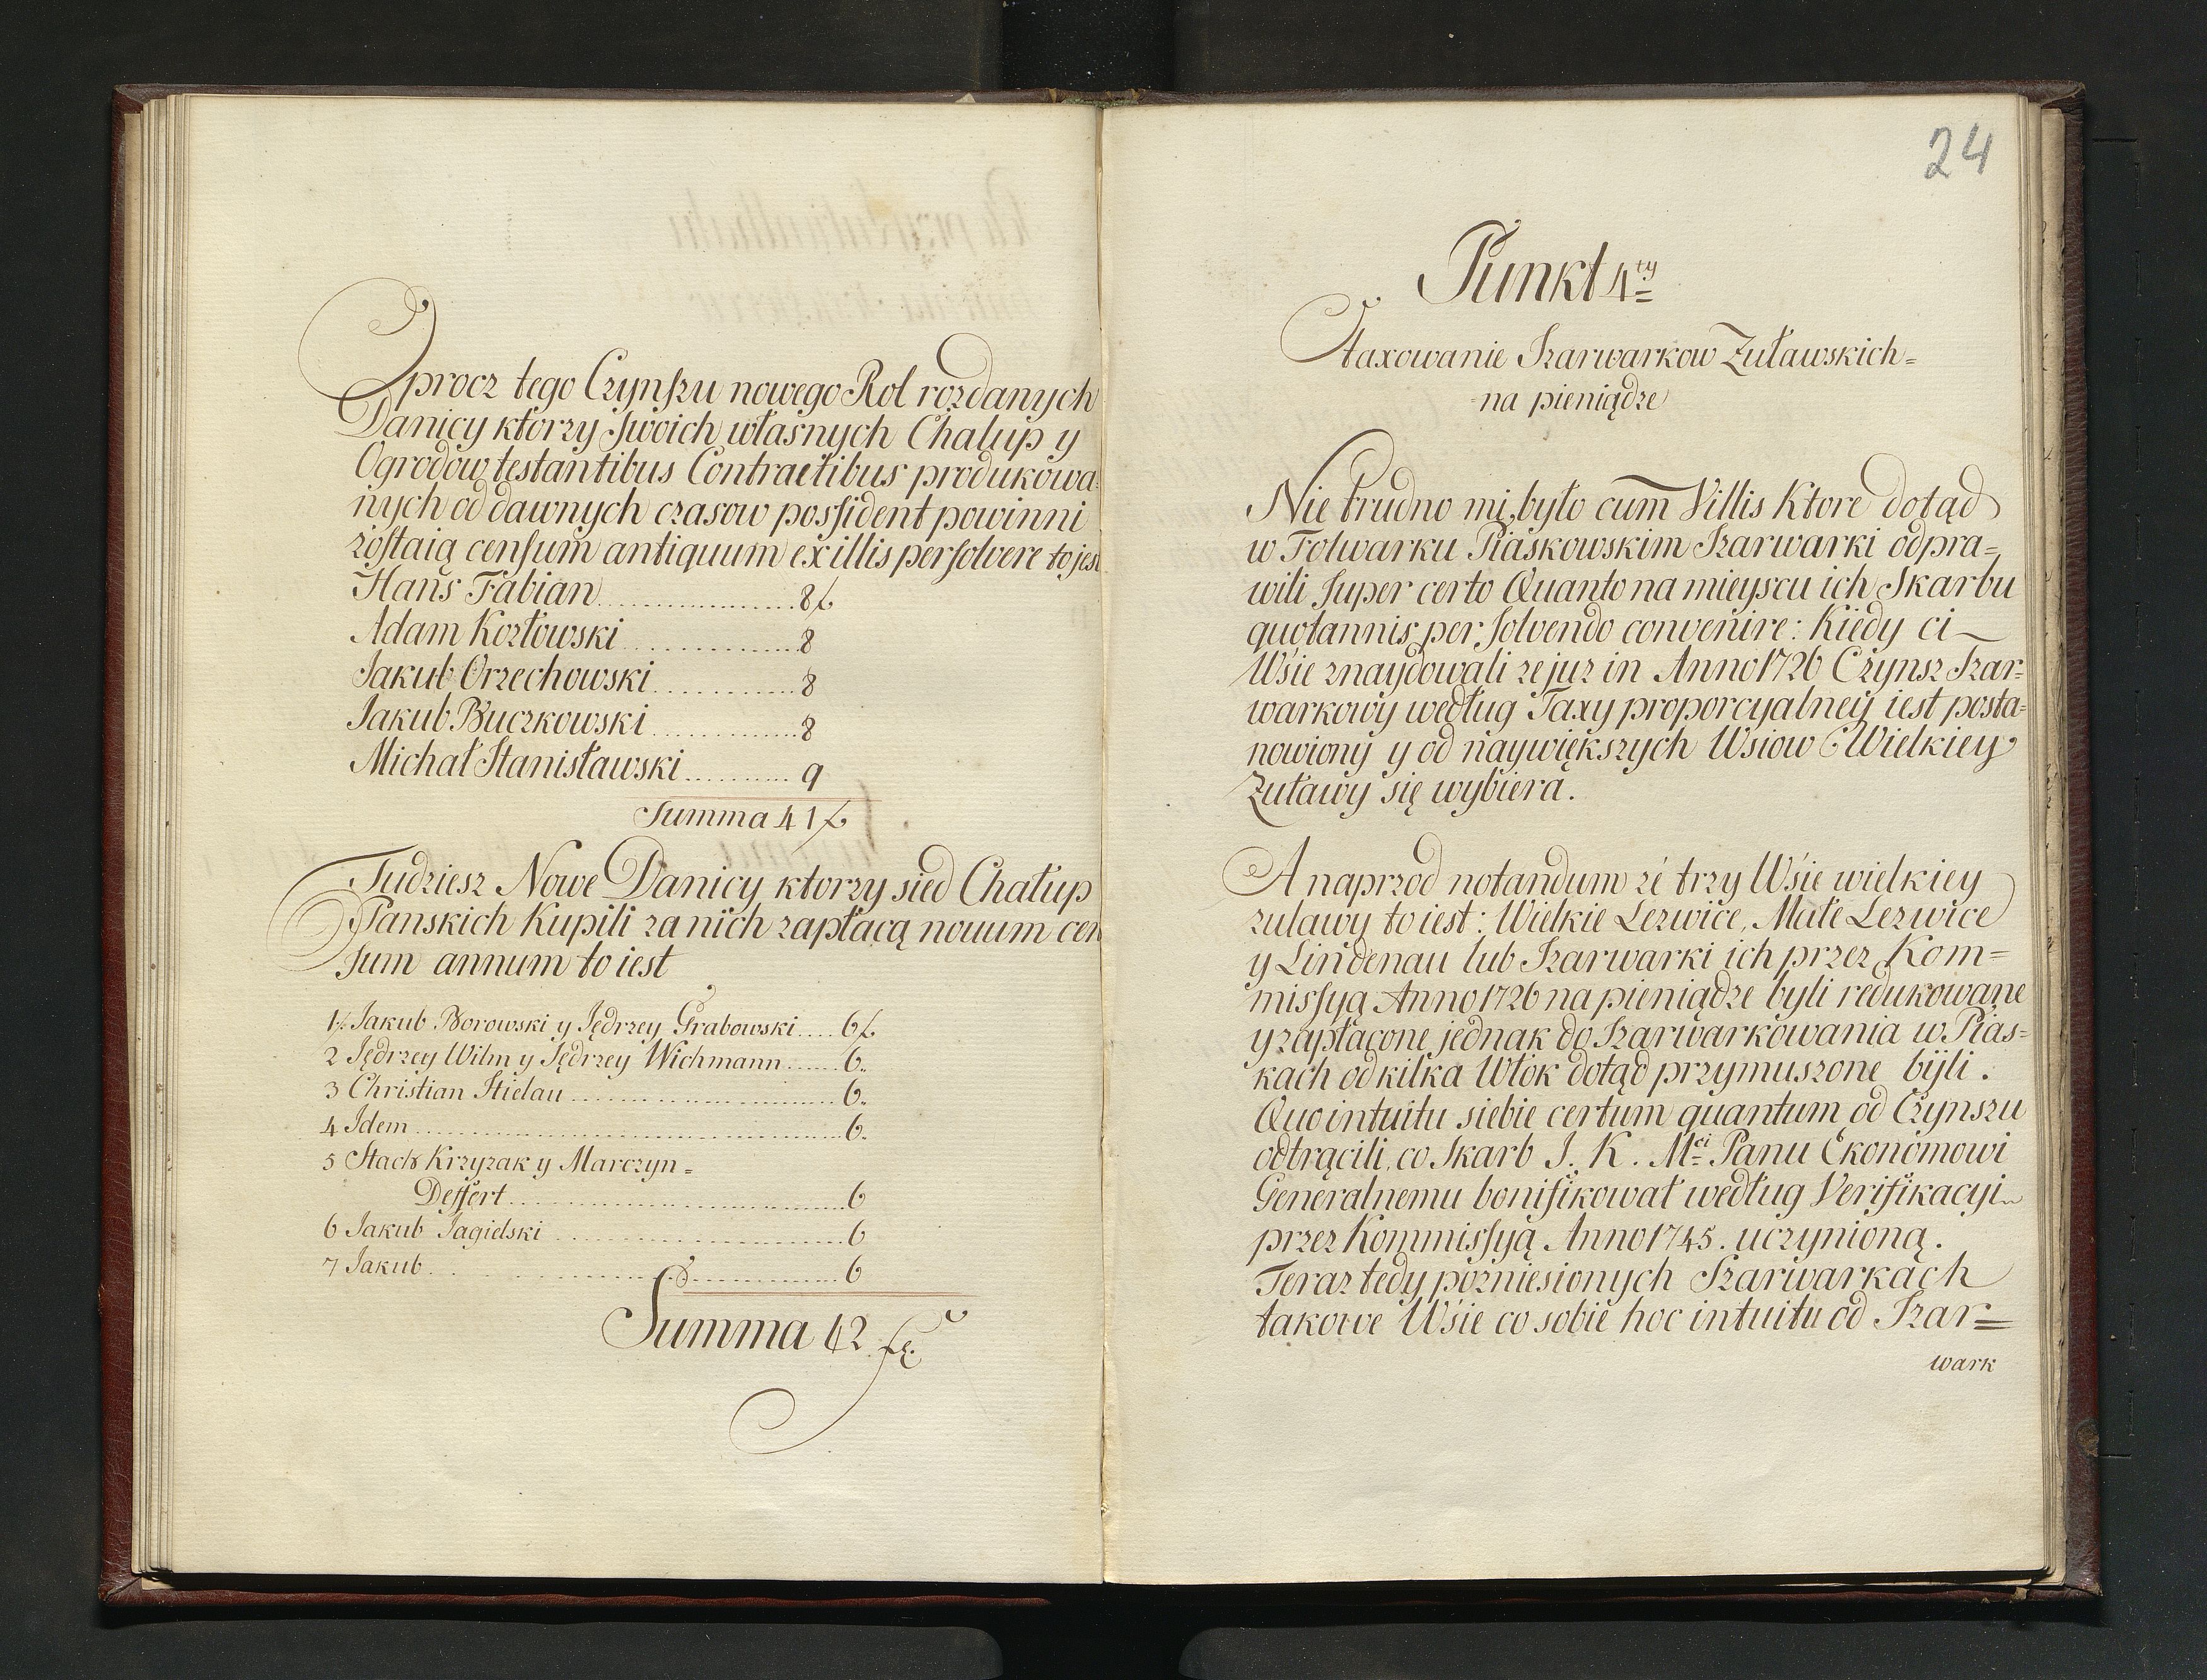 Oprocz tego Czynszu nowego Rol rozdanych
Danicy ktorzy Swoich własnych Chalup y
Ogrodow testantibus Contractibus produkowa=
nych od dawnych czasow possident powinni
zostaią censum antiquum ex illis persolvere to jest
Hans Fabian 8 f
Adam Kozłowski 8
Jakub Orzechowski 8
Jakub Buczkowski 8
Michał Stanisławski 9
Summa 41 f
Tudziesz Nowe Danicy ktorzy sied Chałup
Panskich Kupili za nich zapłacą nouum cen
sum annum to iest
1. Jakub Borowski y Jędrzey Grabowski 6 f
2 Jędrzey Wilm y Jędrzey Wichmann 6.
3 Christian Stielau 6.
4 Idem 6.
5 Stach Krzyzak y Marczyn=
Deffert 6
6 Jakub Jagielski 6
7 Jakub 6
Summa 42 f
24
Punkt 4ty
Otaxowanie Szarwarkow Zuławskich=
na pieniądze
Nie trudno mi było cum Villis Ktore dotąd
w Folwarku Piaskowskim Szarwarki odpra=
wili Super certo Quanto na mieyscu ich Skarbu
quotannis persolvendo convenire: Kiedy ci
Wśie znaydowali ze juz in Anno 1726 Czynsz Szar=
warkowy według Taxy proporcyalney iest posta=
nowiony y od naywiększych Wsiow Wielkiey
Zuławy się wybiera.
A naprzod notandum zé trzy Wśie wielkiey
zulawy to iest: Wielkie Lezwice, Małe Lezwice
y Lindenau lub Szarwarki ich przez Kom=
missyą Anno 1726 na pieniądze byli redukowane
y zapłacone jednak do Szarwarkowania w Pias=
kach od kilka Włok dotąd przymuszone byli.
Quo intuitu siebie certum quantum od Czynszu
odtrącili, co Skarb J. K. Mci Panu Ekonomowi
Generalnemu bonifikował według Verifikacyi
przez Kommissyą Anno 1745. uczynioną.
Teraz tedy pozniesionych Szarwarkach
takowe Wśie co sobie hoc intuitu od Szar=
wark